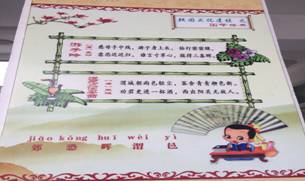 校园文化建设 之
国学经典
游子吟
慈母手中线，游子身上衣。临行密密缝，
意恐迟迟归。谁言寸草心，报得三春晖。
渭城朝雨浥轻尘，客舍青青柳色新。
劝君更进一杯酒，西出阳关无故人。
jiāo kǒng huī wèi yì
郊 恐 晖 渭 邑